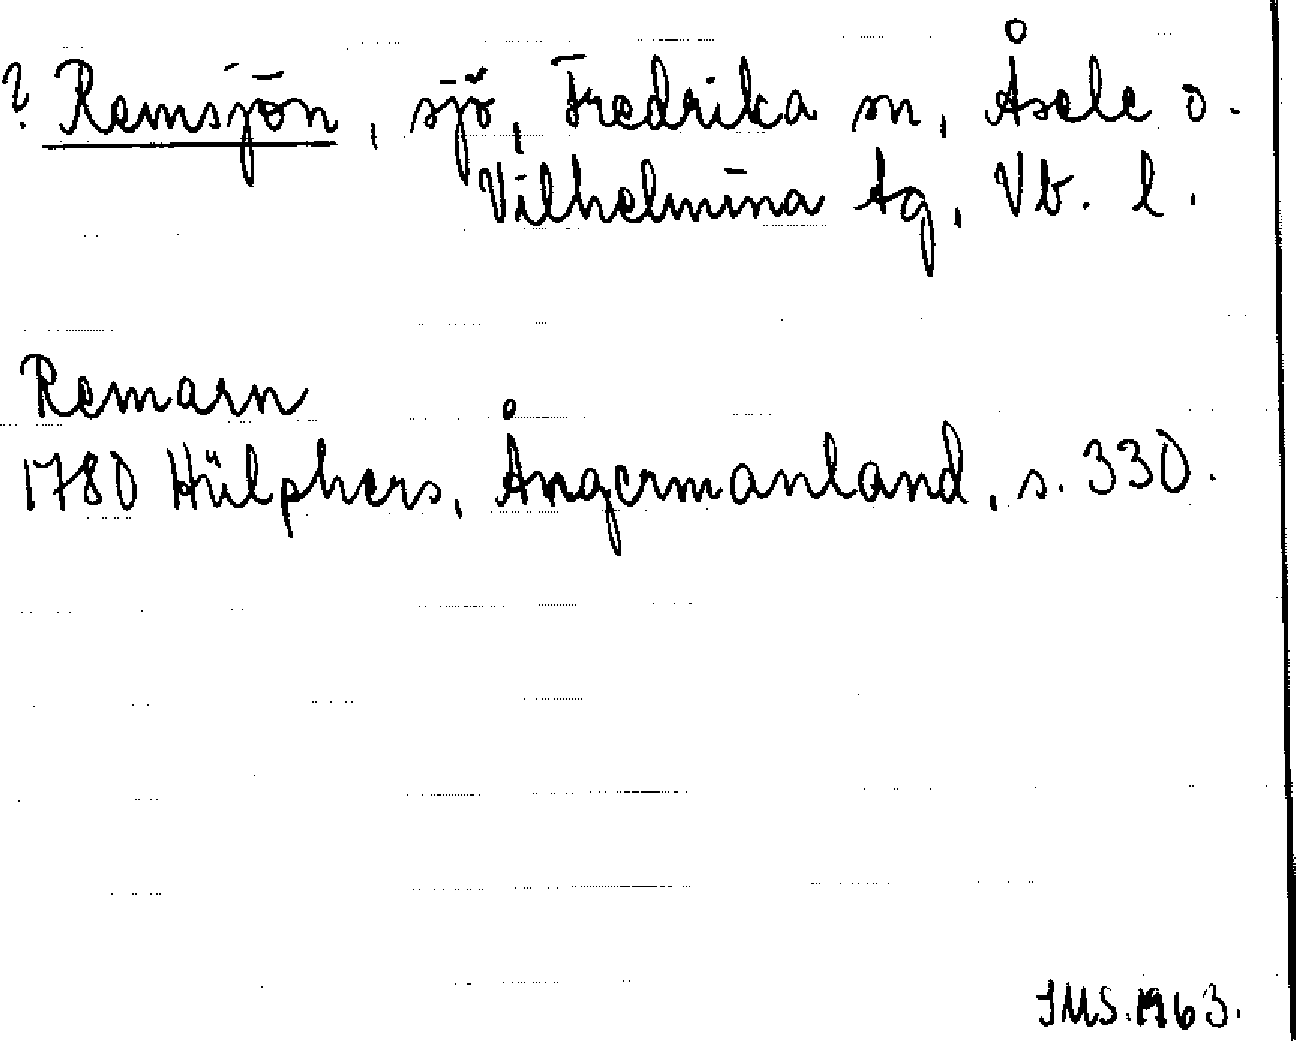 ? Remsjön, sjö, Fredrika sn, Åsele o.
Vilhelmina tg, Vb. l.
Remarn
1780 Hülphers, Ångermanland, s. 330.
JMS. 1963.